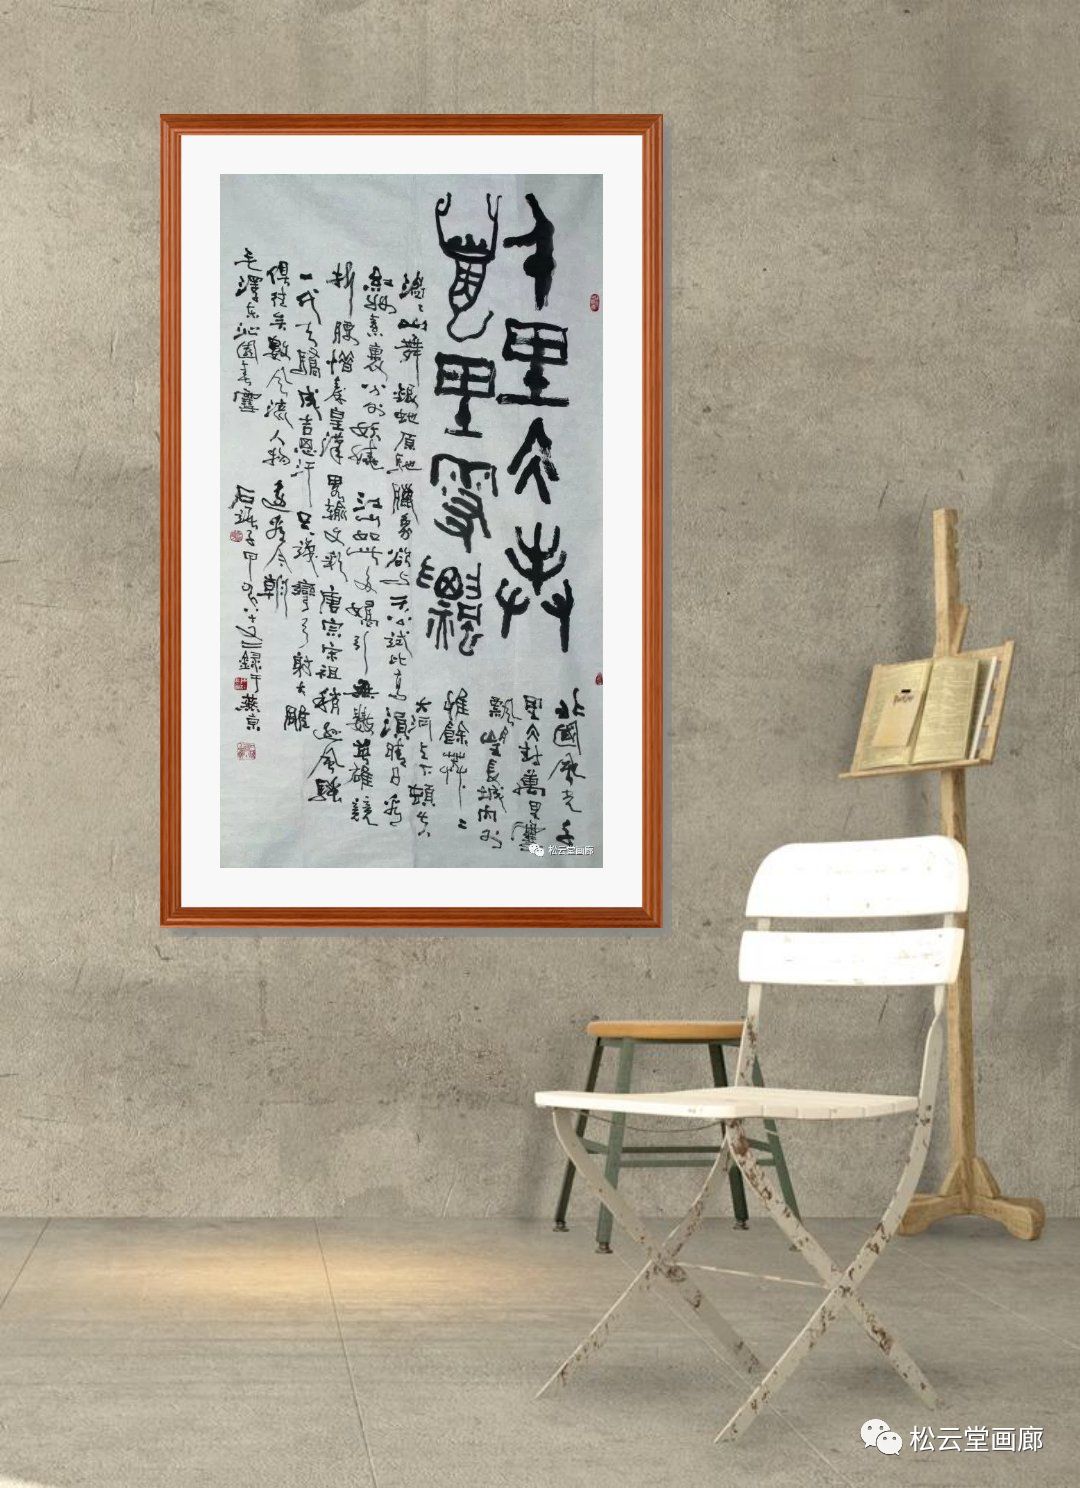 千里仌封
萬里雪飄
北國風光千
里仌封萬里雪
飄望長城內外
惟餘莽〻
大河上下頓失
滔〻山舞銀蛇原馳臘象欲與天公試比高須晴日看
紅妝素裹分外妖嬈江山如此多嬌引無數英雄競
折腰惜秦皇漢畧輸文彩唐宗宋祖稍遜風騷
一代天驕成吉思汗只識彎弓射大雕
俱往矣數風流人物還看今朝
毛澤東沁園春雪
八十又三錄于燕京
松云堂画廊
松云堂画廊